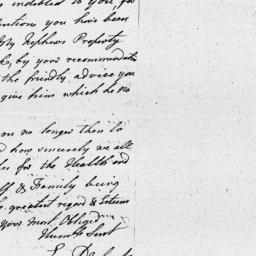 indebted to you, for
you have been
My Nephews Property
by your recommendatn
the friendly advice you
give him which he no
no longer then to
how sincerely we all
for the Health and
& Family being
greatest regard & Esteem
your most Obliged
Humble Servt